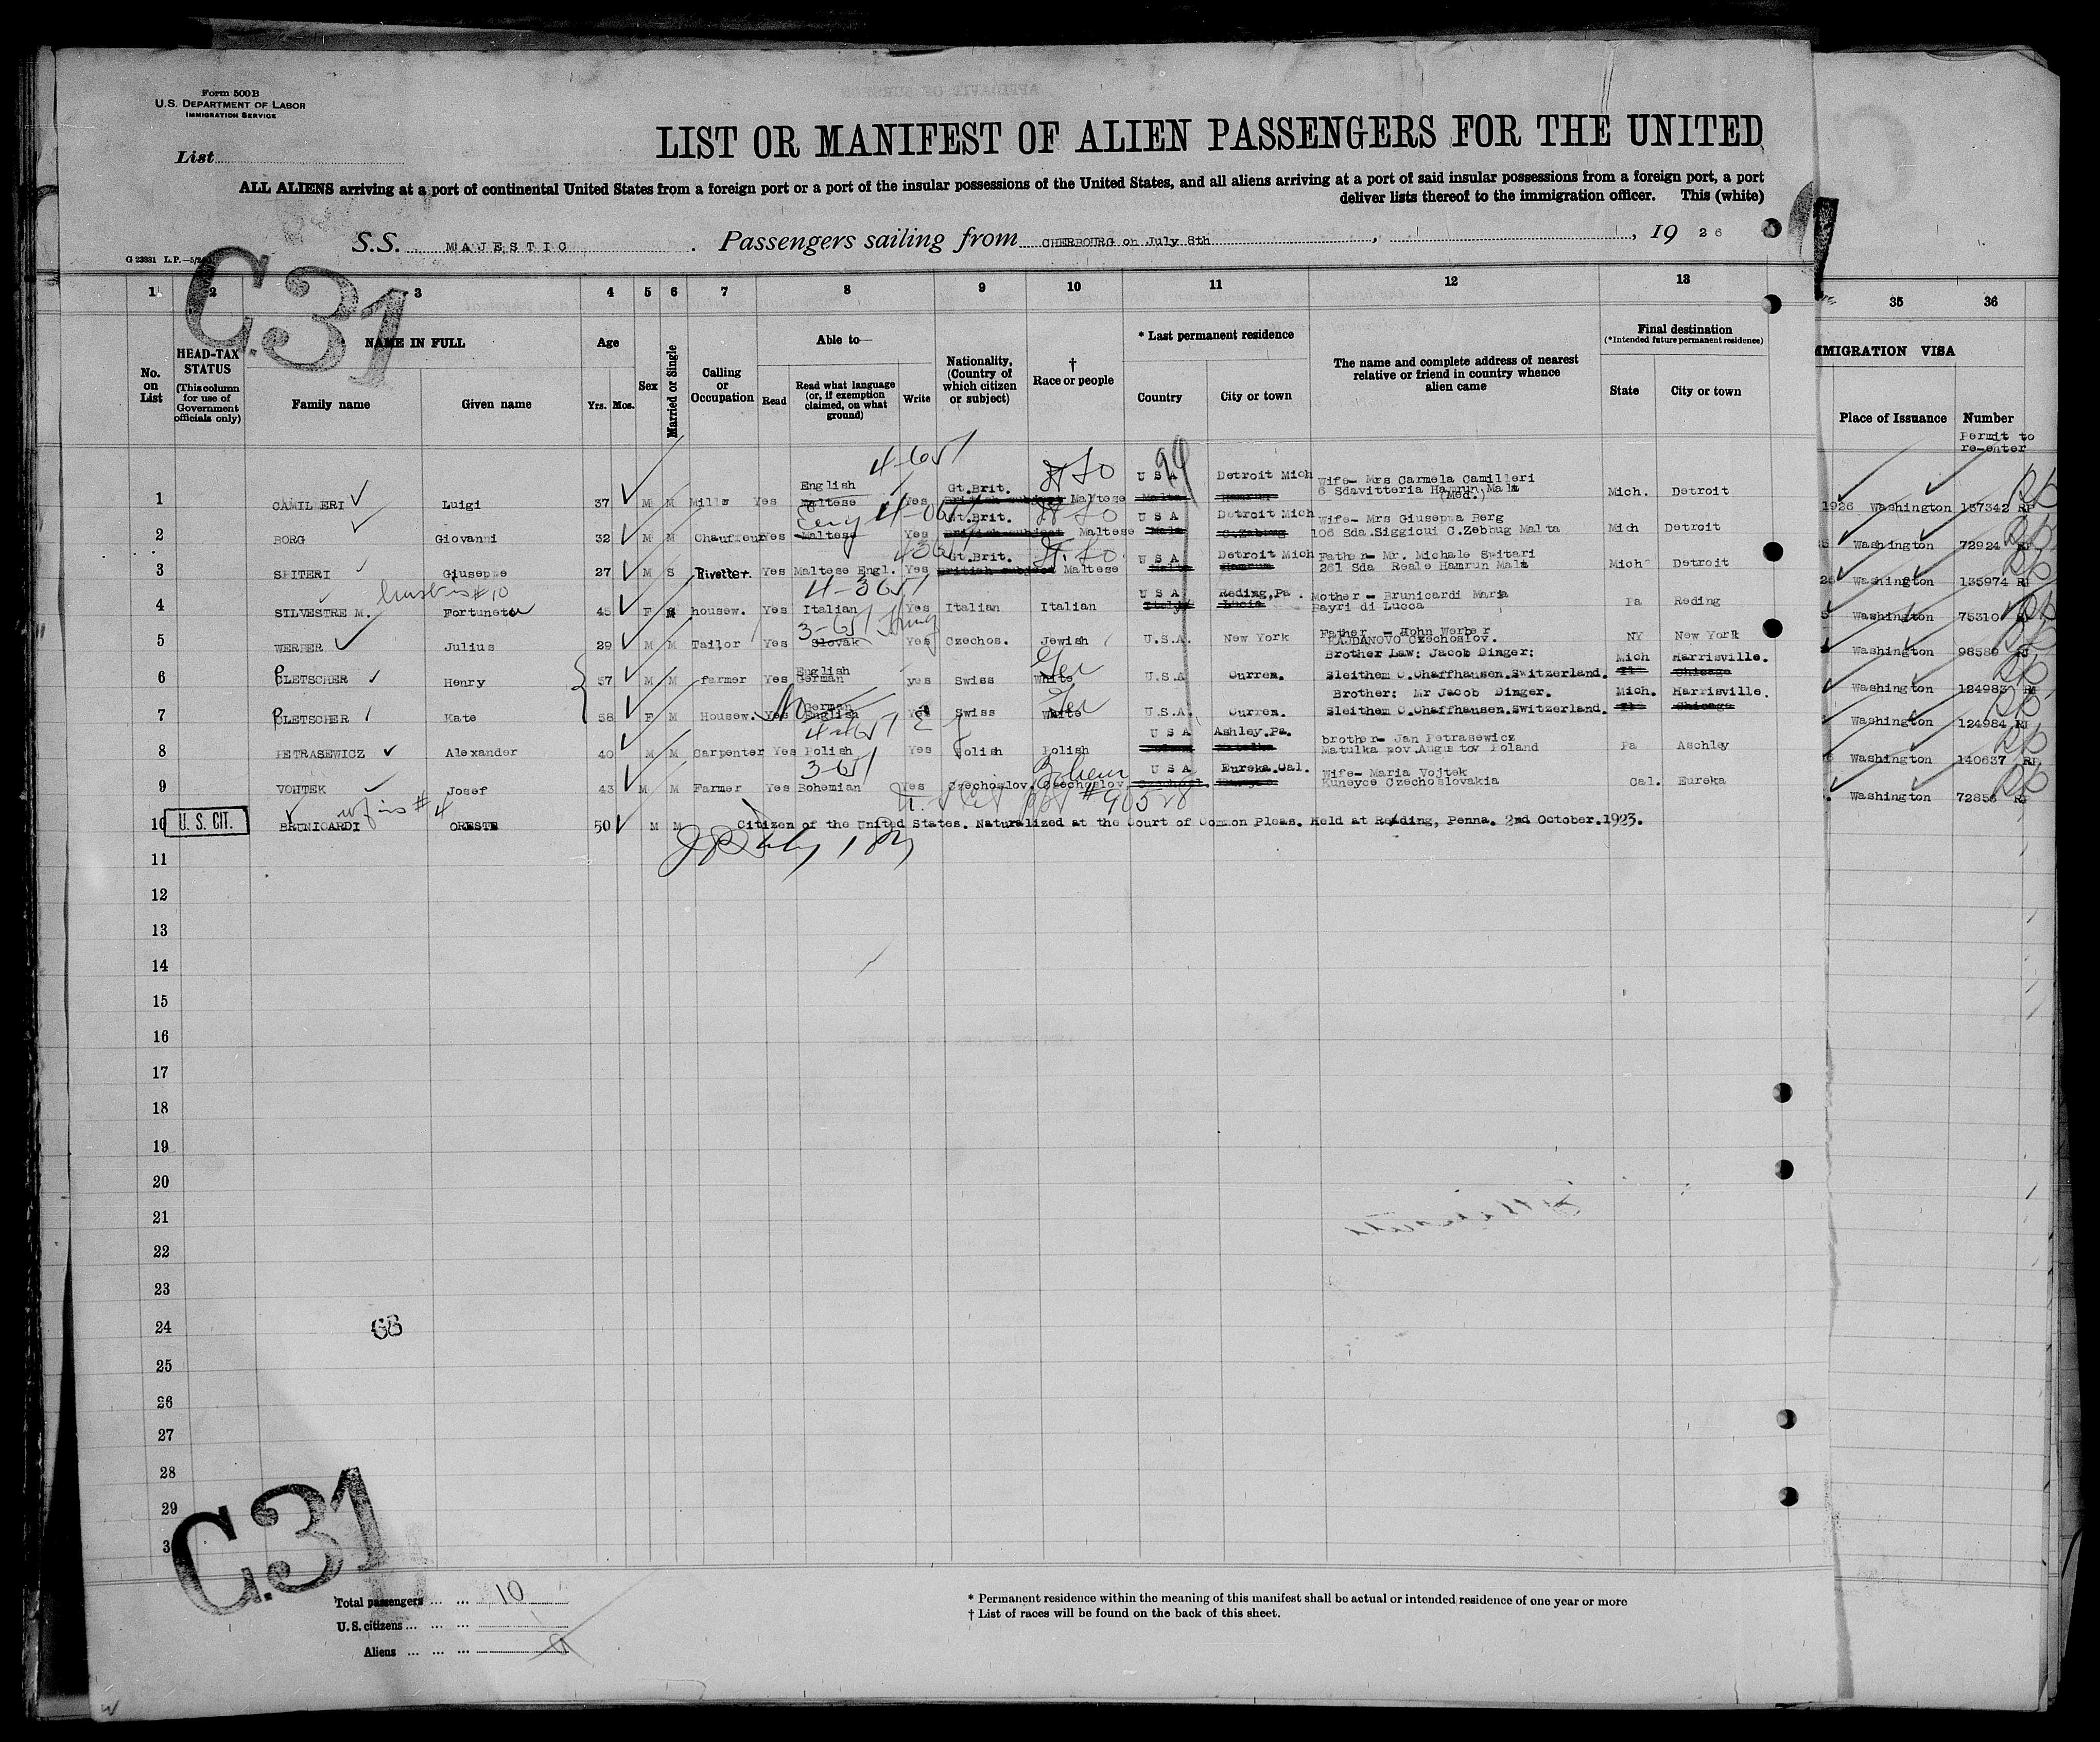 Form 500 B
U.S. DEPARTMENT OF LABOR
IMMIGRATION SERVICE
List
LIST OR MANIFEST OF ALIEN PASSENGERS FOR THE UNITED
ALL ALIENS arriving at a port of continental United States from a foreign port or a port of the insular possessions of the United States, and all aliens arriving at a port of said insular possessions from a foreign port, a port
deliver lists thereof to the immigration officer. This (white)
S.S. MAJESTIC . Passengers sailing from CHERBOURG on July 8th , , 19 26
G 23881 L.P.
C.31
1 2 3 4 5 6 7 8 9 10 11 12 13 35 36
No. on List
HEAD-TAX STATUS (This column for use of Government officials only)
NAME IN FULL Family name Given name
Age Yrs. Mos.
Sex
Married or Single
Calling or Occupation
Able to— Read Read what language (or, if exemption claimed, on what ground) Write
Nationality, (Country of which citizen or subject)
† Race or people
* Last permanent residence Country City or town
The name and complete address of nearest relative or friend in country whence alien came
Final destination (*Intended future permanent residence) State City or town
IMMIGRATION VISA Place of Issuance Number
Permit to re-enter
4-651
1 CAMILLERI Luigi 37 M M Mills Yes English Maltese Yes Gt.Brit. British subject Maltese U S A Malta Detroit Mich Hamrun Wife- Mrs Carmela Camilleri 6 Sdavitteria Hamrun Malt (Med.) Mich. Detroit 1926 Washington 137342
2 BORG Giovanni 32 M M Chauffeur Yes Eng Maltese Yes Gt.Brit. British subject Maltese U S A Malt Detroit Mich C.Zabbug Wife- Mrs Giuseppa Berg 106 Sda.Siggicui C.Zebbug Malta Mich Detroit Washington 72924
3 SPITERI Giuseppe 27 M S Rivetter. Yes Maltese Engl. Yes Gt.Brit. British subject Maltese U S A Malta Detroit Mich Hamrun Father- Mr. Michale Spitari 261 Sda Reale Hamrun Malt Mich Detroit Washington 135974
husb is #10
4-3651
4 SILVESTRE M. Fortunata 45 F housew. Yes Italian Yes Italian Italian U S A Italy Reding,Pa. Lucia Mother - Brunicardi Maria Bayri di Lucca Pa Reding Washington 75310
3-651
5 WERBER Julius 29 M M Tailor Yes Slovak Yes Czechos. Jewish U.S.A. New York Father - Hohn Werber PAJDANOVO Czechoslov. NY New York Washington 98580
6 PLETSCHER Henry 57 M M farmer Yes English German yes Swiss White Ger U.S.A Curren. Brother Law: Jacob Dinger: Sleithem C.Chaffhausen.Switzerland. Mich Ill Harrisville. Chicago Washington 124983
7 PLETSCHER Kate 58 F M Housew. Yes German English Yes Swiss White Ger U.S.A. Curren. Brother: Mr Jacob Dinger. Sleithem C.Chaffhausen.Switzerland. Mich. Ill Harrisville. Chicago Washington 124984
8 PETRASEWICZ Alexander 40 M M Carpenter Yes Polish Yes Polish Polish U S A Ashley.Pa. Matulka brother- Jan Petrasewicz Matulka pov.Augustov Poland Pa Aschley Washington 140637
3-651
9 VOHTEK Josef 43 M M Farmer Yes Bohemian Yes Czechoslov. Czechoslov. Bohem U S A Czechosl. Eureka.Cal. Wife- Maria Vojtek Kuneyce Czechoslovakia Cal. Eureka Washington 72858
wf is #4
10 U. S. CIT. BRUNICARDI ORESTE 50 M M Citizen of the United States. Naturalized at the Court of Common Pleas. Held at Reading, Penna. 2nd October.1923.
11
12
13
14
15
16
17
18
19
20
21
22
23
24
25
26
27
28
29
3
C.31
Total passengers ... ... 10
U. S. citizens ... ... ... 1
Aliens ... ... ...
* Permanent residence within the meaning of this manifest shall be actual or intended residence of one year or more
† List of races will be found on the back of this sheet.